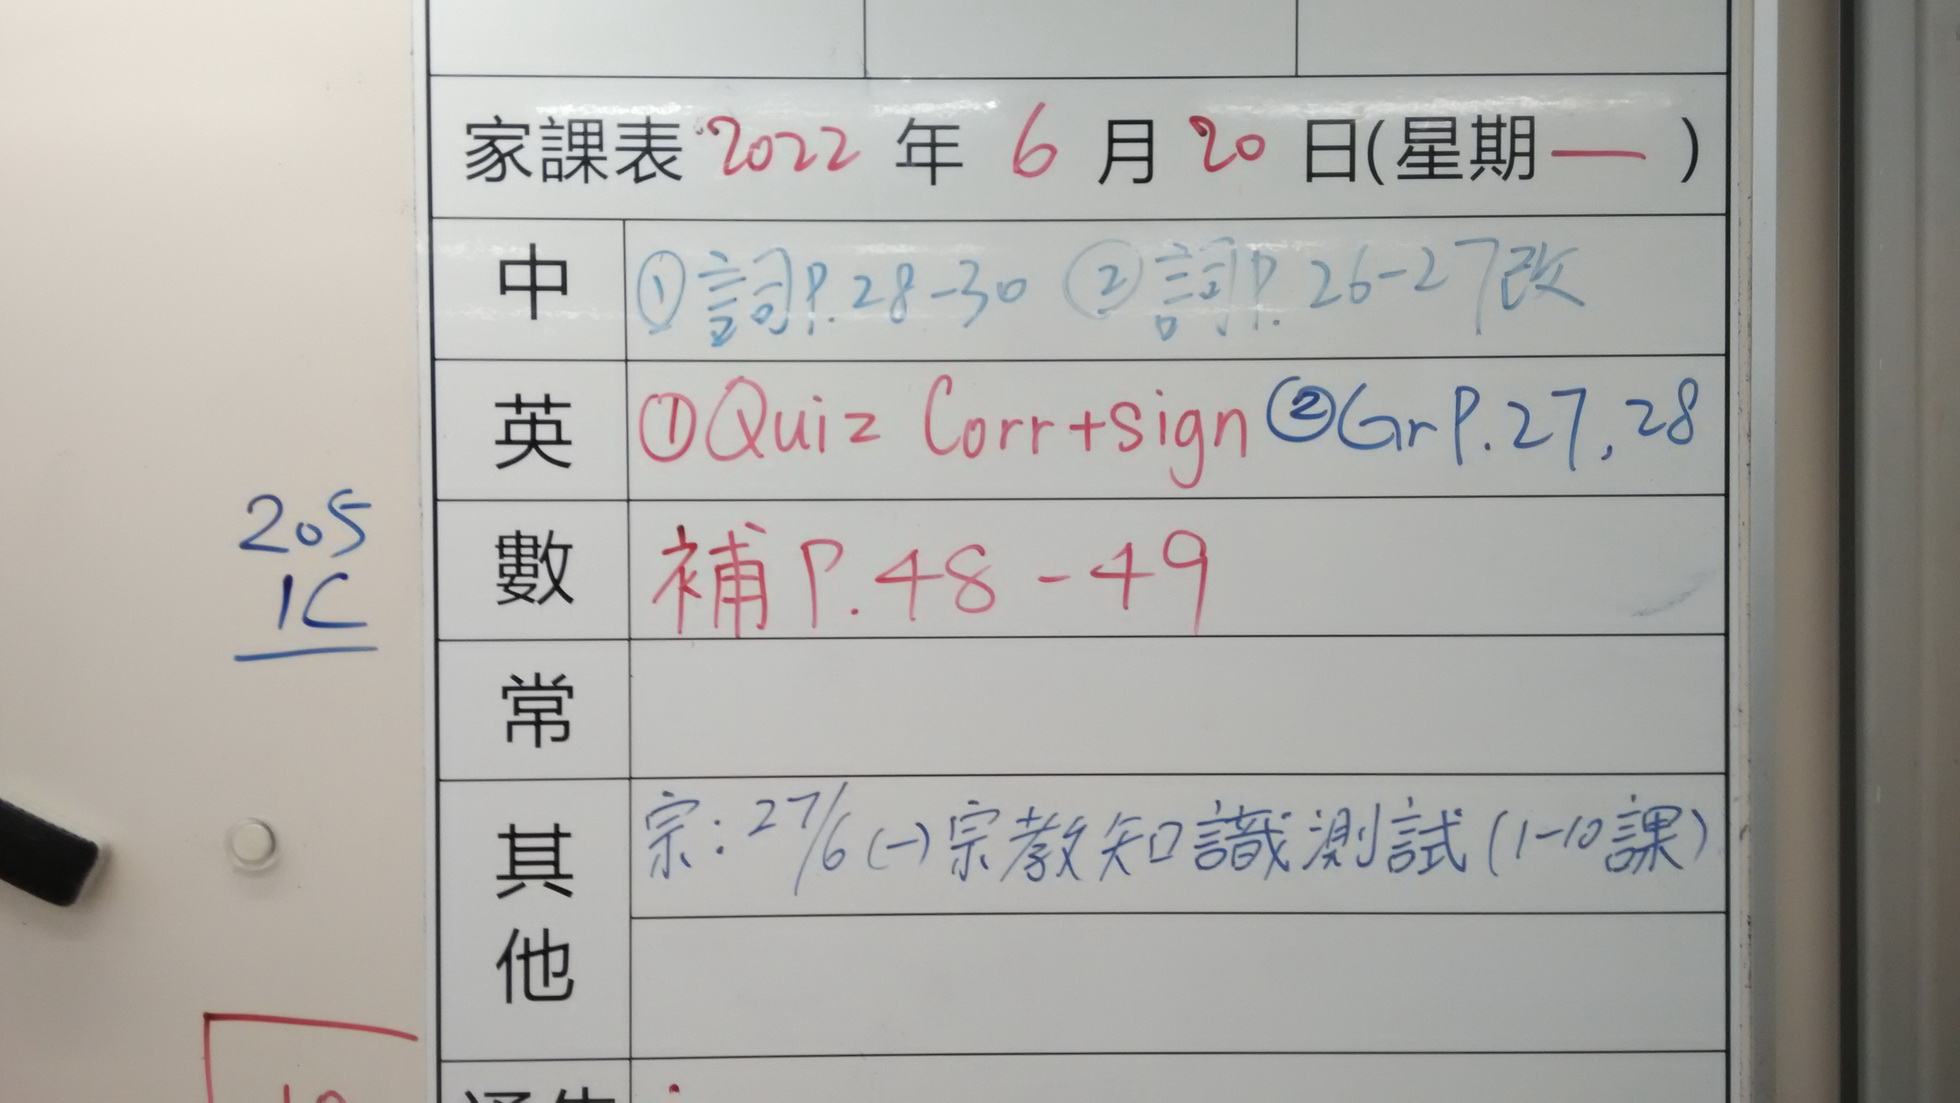 家課表 2022 年 6 月 20 日(星期一)
中 ①詞P.28-30 ②詞P.26-27改
英 ①Quiz Corr+sign ②Gr P.27,28
205
1C
數 補 P.48-49
常
其他 宗:27/6(一)宗教知識測試(1-10課)